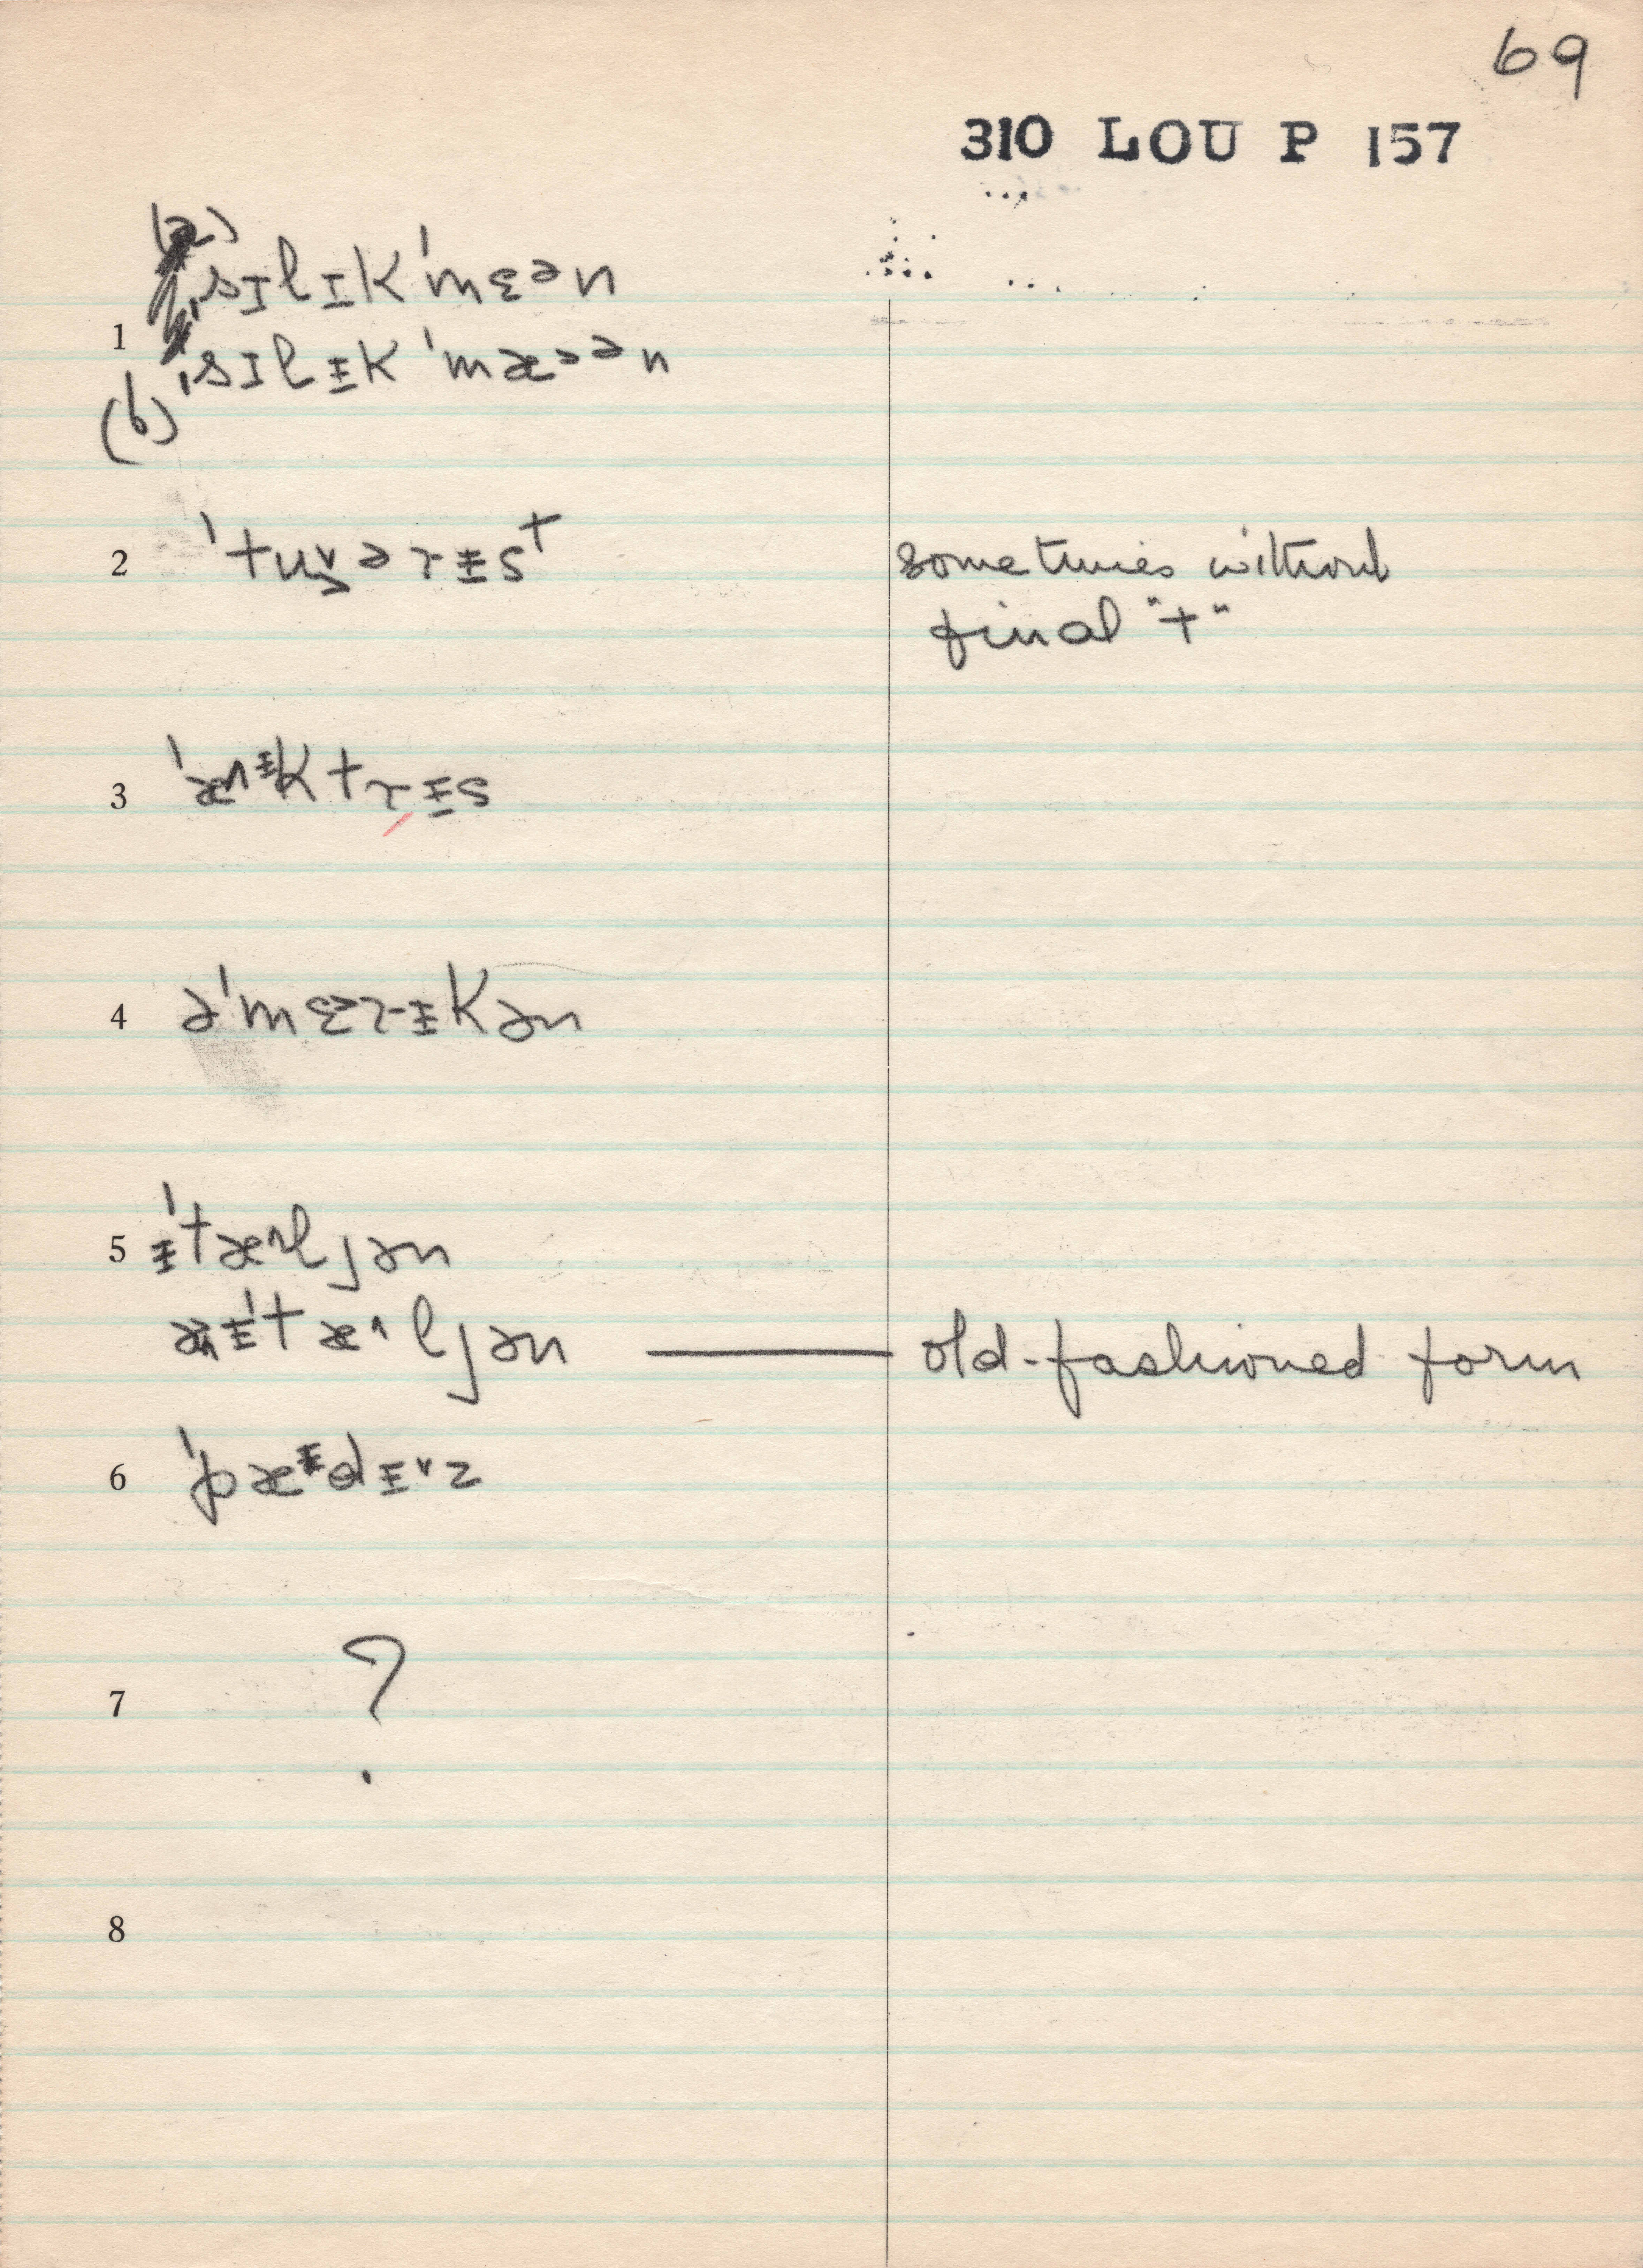 69
310 LOU P 157
(a)
ˌsɪlɪk'mɛən
1
(b) ˌsɪlᵻk'mæ>ən
2 'tu˅>əɾᵻsᵗ
sometimes without
final "t"
3 'æ^ᵻktɾᵻs
4 ə'mɛ>ɾᵻkən
5 ᵻ'tæ^ljən
ᵻ'tæ^ljən — old-fashioned form
6 'pæᵻdᵻ˅z
7 ?
8